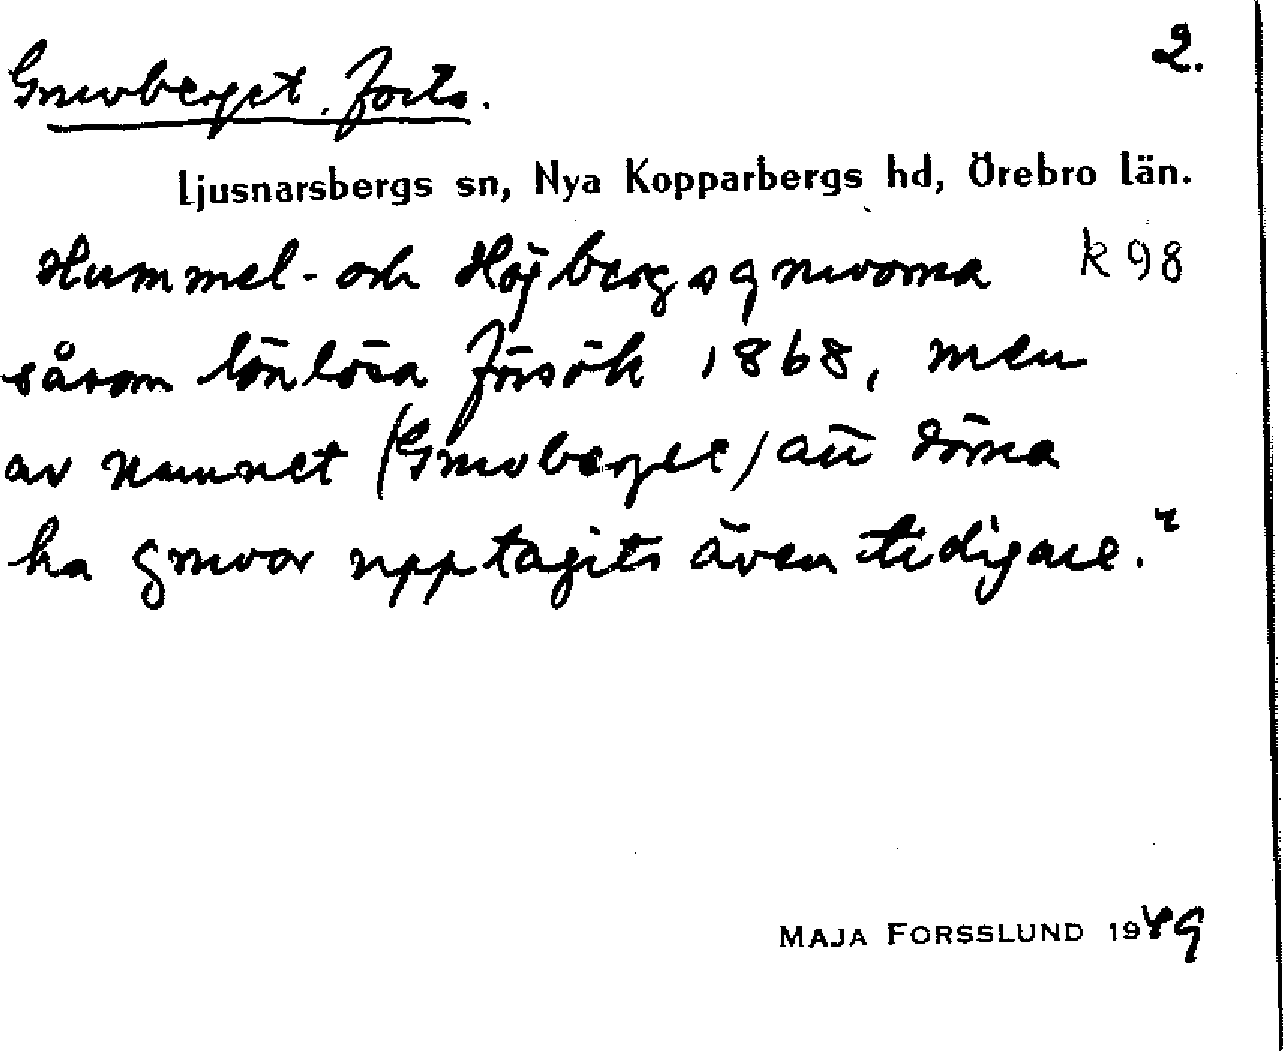 2.
Gruvberget. forts.
Ljusnarsbergs sn, Nya Kopparbergs hd, Örebro län.
Hummel- och Höjbergsgruvorna k 98
såsom lönlösa försök 1868, men
av namnet (Gruvberget) att döma
ha gruvor upptagits även tidigare."
MAJA FORSSLUND 1949